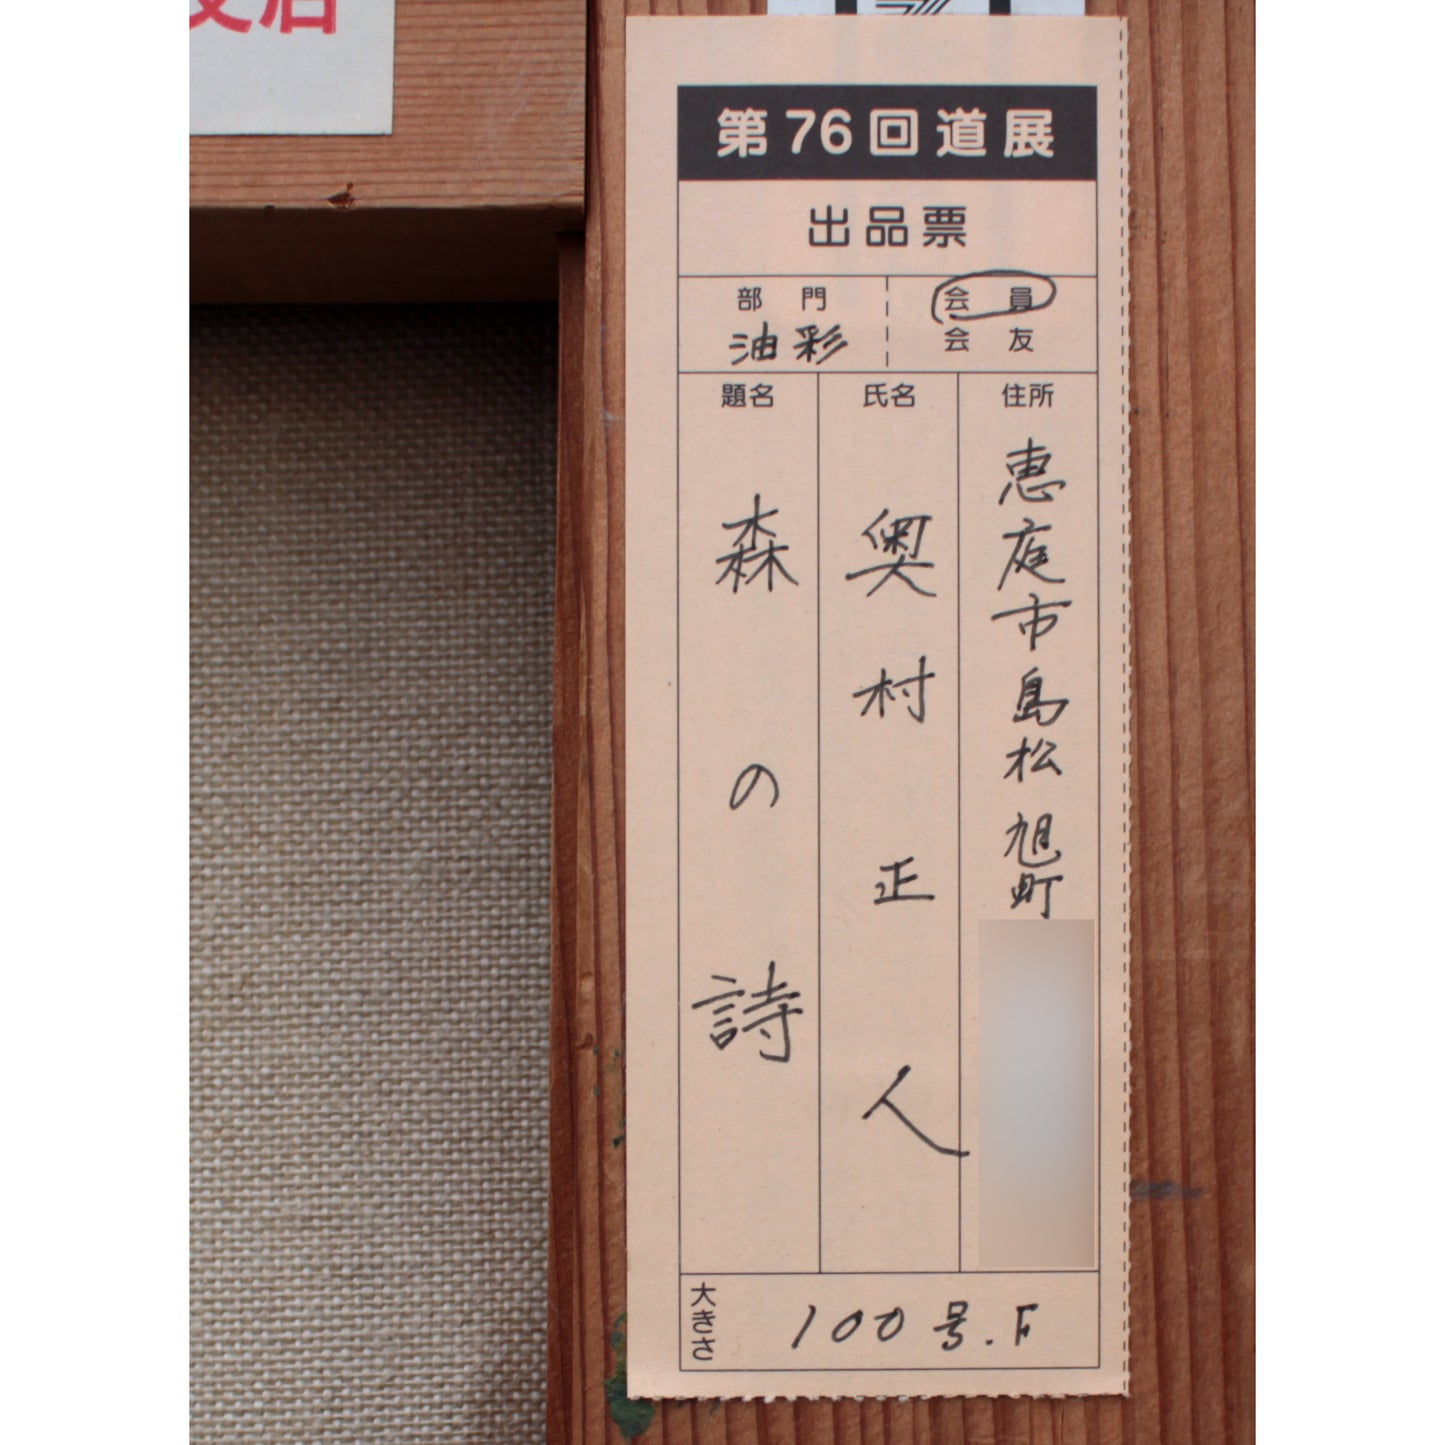 支店
第76回道展
出品票
部門
油彩
会員
会友
題名
森の詩
氏名
奥村正人
住所
恵庭市島松旭町
大きさ
100号.F